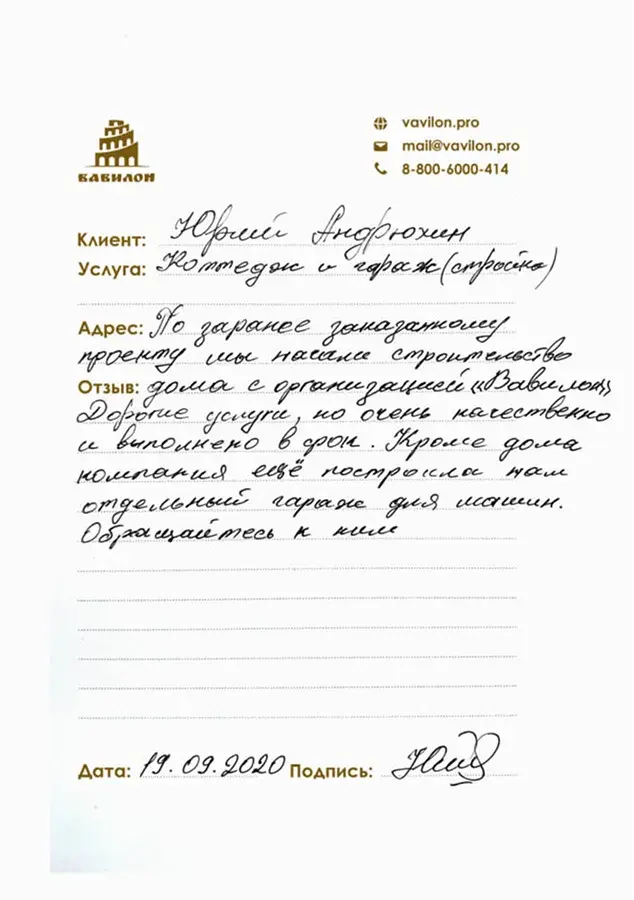 ВАВИЛОН
vavilon.pro
mail@vavilon.pro
8-800-6000-414
Клиент: Юрий Андрюхин
Услуга: Коттедж и гараж (стройка)
Адрес: По заранее заказанному
проекту мы начали строительство
Отзыв: дома с организацией «Вавилон»
Дорогие услуги, но очень качественно
и выполнено в срок. Кроме дома
компания ещё построила нам
отдельный гараж для машин.
Обращайтесь к ним
Дата: 19.09.2020 Подпись: